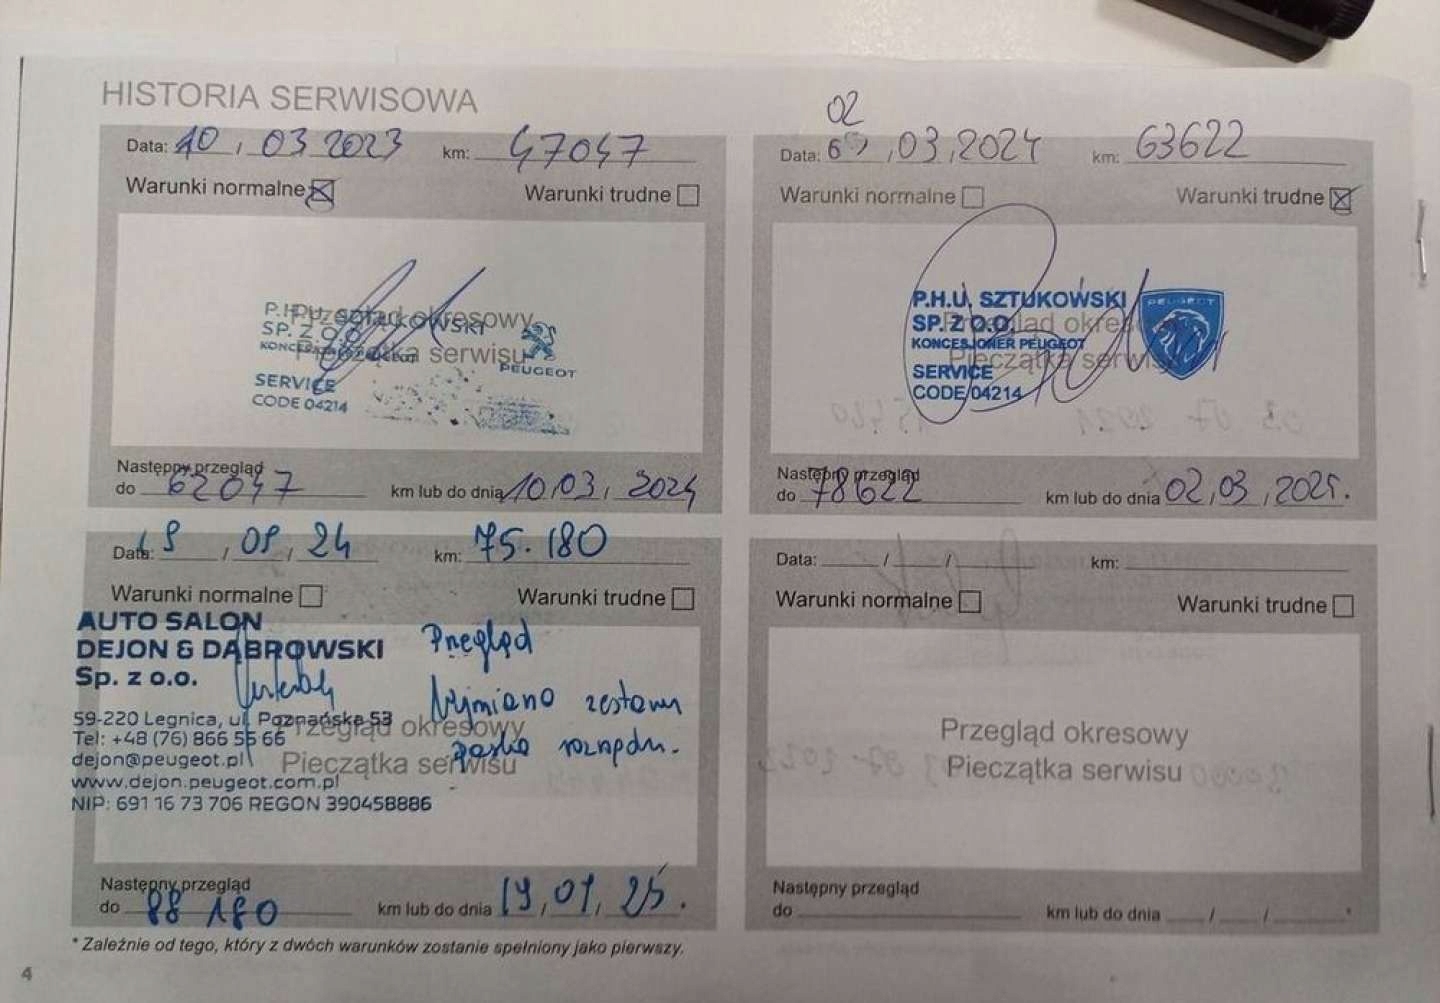 HISTORIA SERWISOWA
Data: 10 . 03 2023 km: 47047
Warunki normalne Warunki trudne
P.H.U. SZTUKOWSKI
SP. Z O.O.
KONCESJONER PEUGEOT
SERVICE
CODE 04214
PEUGEOT
Przegląd okresowy
Pieczątka serwisu
Następny przegląd
do 62047 km lub do dnia 10.03, 2024
02
Data: , 03, 2024 km: 63622
Warunki normalne Warunki trudne
P.H.U. SZTUKOWSKI
SP. Z O.O.
KONCESJONER PEUGEOT
SERVICE
CODE 04214
PEUGEOT
Przegląd okresowy
Pieczątka serwisu
Następny przegląd
do 78622 km lub do dnia 02, 03, 2025.
Data: / / 24 km: 75.180
Warunki normalne Warunki trudne
AUTO SALON
DEJON & DĄBROWSKI
Sp. z o.o.
59-220 Legnica, ul. Poznańska 53
Tel: +48 (76) 866 55 66
dejon@peugeot.pl
www.dejon.peugeot.com.pl
NIP: 691 16 73 706 REGON 390458886
Przegląd
Wymiana zestawu
paska rozrządu.
Przegląd okresowy
Pieczątka serwisu
Następny przegląd
do 88 180 km lub do dnia 19 / / 25.
Data: / / km:
Warunki normalne Warunki trudne
Przegląd okresowy
Pieczątka serwisu
Następny przegląd
do km lub do dnia / / *
* Zależnie od tego, który z dwóch warunków zostanie spełniony jako pierwszy.
4